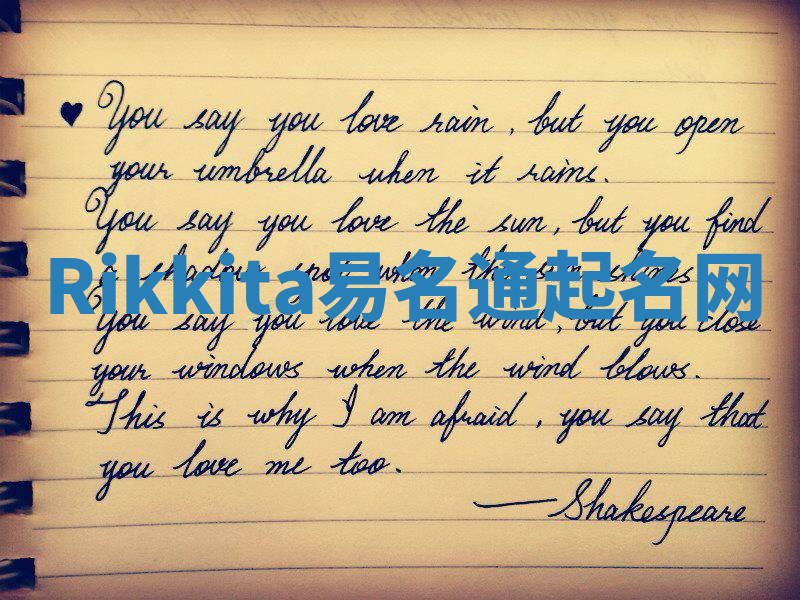 ♥ You say you love rain, but you open
your umbrella when it rains.
You say you love the sun, but you find
a shadow spot when the sun shines
Rikkita易名通起名网
You say you love the wind, but you close
your windows when the wind blows.
This is why I am afraid, you say that
you love me too.
—Shakespeare